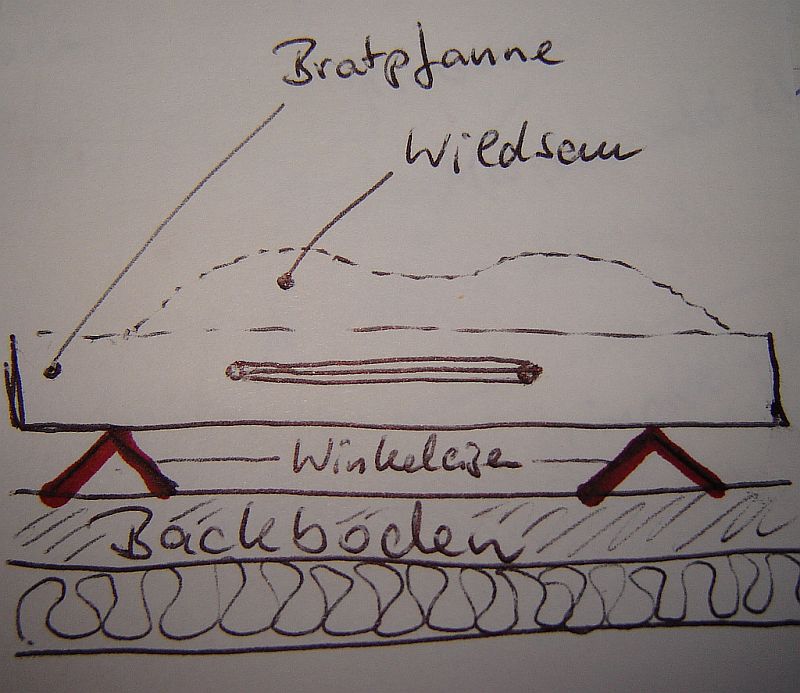 Bratpfanne
Wildsau
Winkeleisen
Backböden